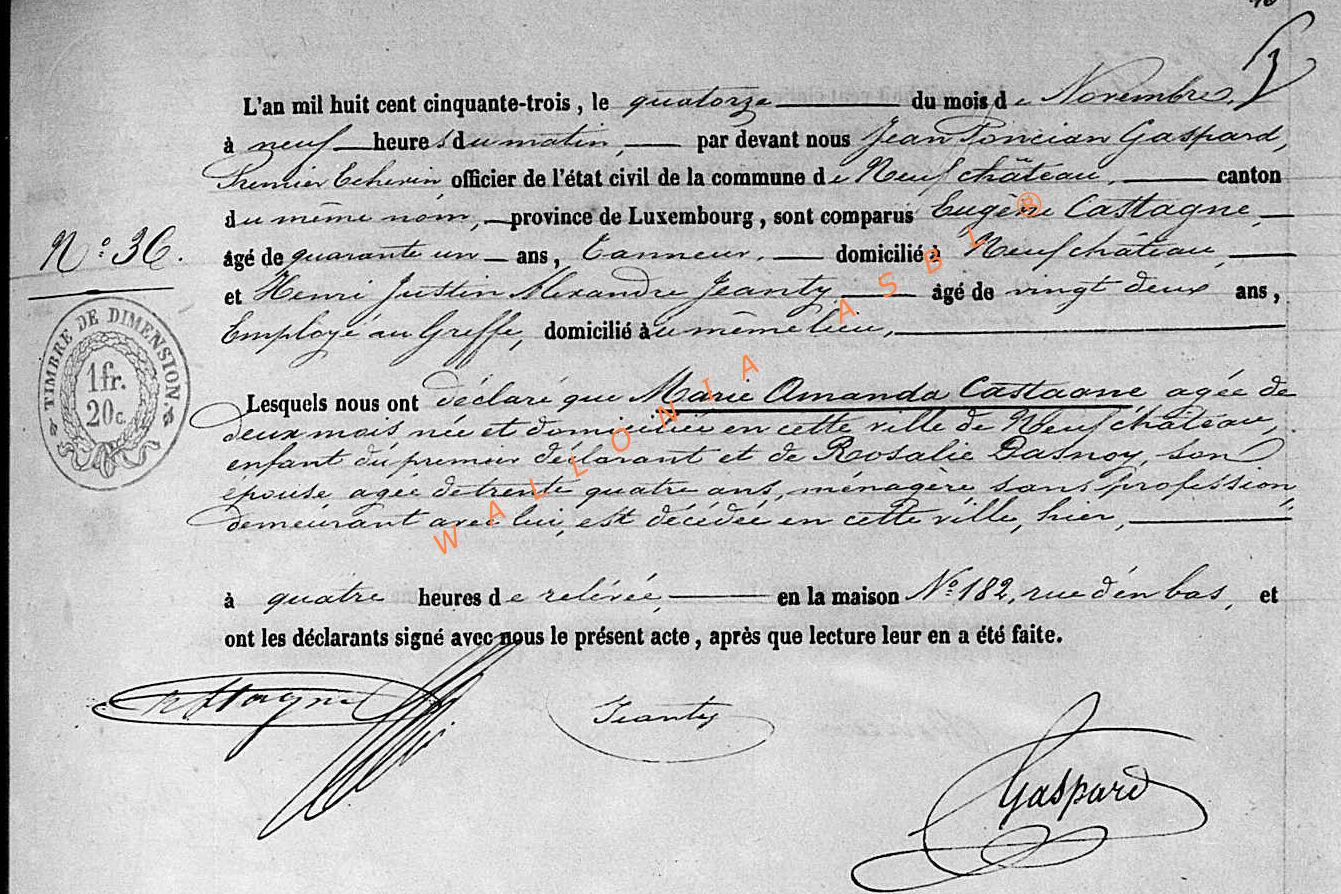 L'an mil huit cent cinquante-trois, le quatorze du mois de Novembre,
à neuf heures du matin, par devant nous Jean Poncian Gaspard,
Premier Echevin officier de l'état civil de la commune de Neufchâteau, canton
du même nom, province de Luxembourg, sont comparus Eugène Castagne,
N.o 36.
âgé de quarante un ans, Tanneur, domicilié à Neufchâteau,
et Henri Justin Alexandre Jeanty âgé de vingt deux ans,
Employé au Greffe, domicilié au même lieu,
TIMBRE DE DIMENSION.
1 fr.
20 c.
Lesquels nous ont déclaré que Marie Amanda Castagne agée de
deux mois née et domiciliée en cette ville de Neufchâteau,
enfant du premier déclarant et de Rosalie Dasnoy, son
épouse agée de trente quatre ans, ménagère sans profession,
demeurant avec lui, est décédée en cette ville, hier,
à quatre heures de relévée, en la maison N.o 182, rue d'en bas, et
ont les déclarants signé avec nous le présent acte, après que lecture leur en a été faite.
Castagne
Jeanty
Gaspard
WALLONIA ASBL ®